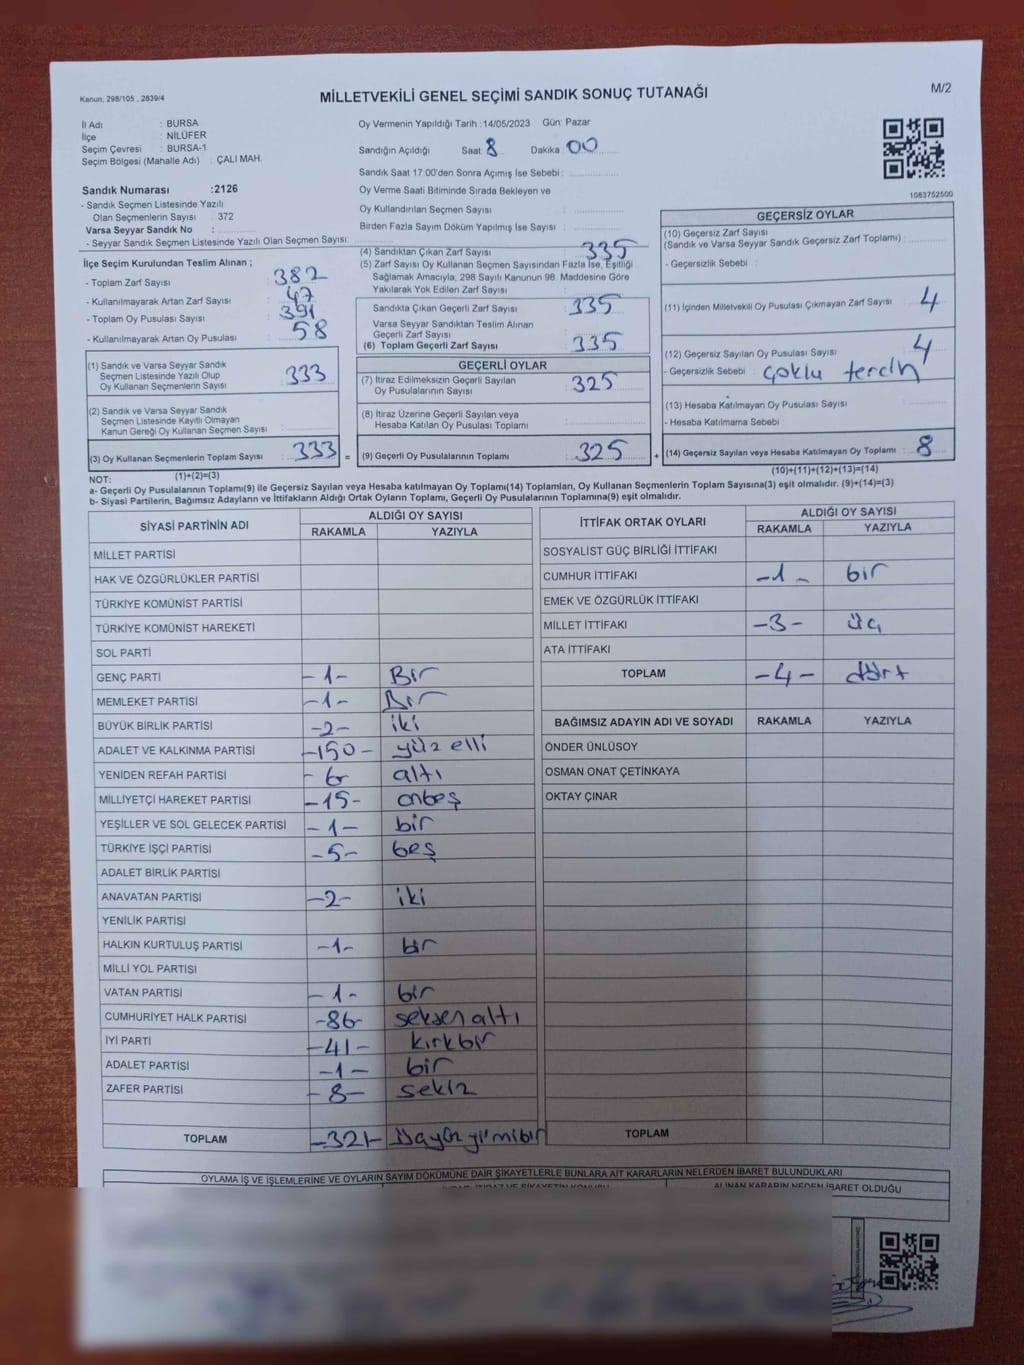 Kanun, 298/105 , 2839/4
MİLLETVEKİLİ GENEL SEÇİMİ SANDIK SONUÇ TUTANAĞI
M/2
İl Adı : BURSA
İlçe : NİLÜFER
Seçim Çevresi : BURSA-1
Seçim Bölgesi (Mahalle Adı) : ÇALI MAH.
Sandık Numarası :2126
- Sandık Seçmen Listesinde Yazılı
Olan Seçmenlerin Sayısı : 372
Varsa Seyyar Sandık No :
- Seyyar Sandık Seçmen Listesinde Yazılı Olan Seçmen Sayısı:
Oy Vermenin Yapıldığı Tarih :14/05/2023 Gün: Pazar
Sandığın Açıldığı Saat: 8 Dakika 00
Sandık Saat 17:00'den Sonra Açımış İse Sebebi :
Oy Verme Saati Bitiminde Sırada Bekleyen ve
Oy Kullandırılan Seçmen Sayısı :
Birden Fazla Sayım Döküm Yapılmış İse Sayısı :
1083752500
İlçe Seçim Kurulundan Teslim Alınan ;
- Toplam Zarf Sayısı : 382
- Kullanılmayarak Artan Zarf Sayısı : 47
- Toplam Oy Pusulası Sayısı : 391
- Kullanılmayarak Artan Oy Pusulası : 58
(1) Sandık ve Varsa Seyyar Sandık
Seçmen Listesinde Yazılı Olup
Oy Kullanan Seçmenlerin Sayısı : 333
(2) Sandık ve Varsa Seyyar Sandık
Seçmen Listesinde Kayıtlı Olmayan
Kanun Gereği Oy Kullanan Seçmen Sayısı :
(3) Oy Kullanan Seçmenlerin Toplam Sayısı : 333 =
(1)+(2)=(3)
(4) Sandıktan Çıkan Zarf Sayısı : 335
(5) Zarf Sayısı Oy Kullanan Seçmen Sayısından Fazla İse, Eşitliği
Sağlamak Amacıyla; 298 Sayılı Kanunun 98. Maddesine Göre
Yakılarak Yok Edilen Zarf Sayısı :
Sandıkta Çıkan Geçerli Zarf Sayısı : 335
Varsa Seyyar Sandıktan Teslim Alınan
Geçerli Zarf Sayısı :
(6) Toplam Geçerli Zarf Sayısı : 335
GEÇERLİ OYLAR
(7) İtiraz Edilmeksizin Geçerli Sayılan
Oy Pusulalarının Sayısı : 325
(8) İtiraz Üzerine Geçerli Sayılan veya
Hesaba Katılan Oy Pusulası Toplamı :
(9) Geçerli Oy Pusulalarının Toplamı : 325 +
GEÇERSİZ OYLAR
(10) Geçersiz Zarf Sayısı
(Sandık ve Varsa Seyyar Sandık Geçersiz Zarf Toplamı) :
- Geçersizlik Sebebi :
(11) İçinden Milletvekili Oy Pusulası Çıkmayan Zarf Sayısı : 4
(12) Geçersiz Sayılan Oy Pusulası Sayısı : 4
- Geçersizlik Sebebi : çoklu tercih
(13) Hesaba Katılmayan Oy Pusulası Sayısı :
- Hesaba Katılmama Sebebi :
(14) Geçersiz Sayılan veya Hesaba Katılmayan Oy Toplamı : 8
(10)+(11)+(12)+(13)=(14)
NOT:
a- Geçerli Oy Pusulalarının Toplamı(9) ile Geçersiz Sayılan veya Hesaba katılmayan Oy Toplamı(14) Toplamları, Oy Kullanan Seçmenlerin Toplam Sayısına(3) eşit olmalıdır. (9)+(14)=(3)
b- Siyasi Partilerin, Bağımsız Adayların ve İttifakların Aldığı Ortak Oyların Toplamı, Geçerli Oy Pusulalarının Toplamına(9) eşit olmalıdır.
SİYASİ PARTİNİN ADI ALDIĞI OY SAYISI
RAKAMLA YAZIYLA
MİLLET PARTİSİ
HAK VE ÖZGÜRLÜKLER PARTİSİ
TÜRKİYE KOMÜNİST PARTİSİ
TÜRKİYE KOMÜNİST HAREKETİ
SOL PARTİ
GENÇ PARTİ -1- Bir
MEMLEKET PARTİSİ -1- Bir
BÜYÜK BİRLİK PARTİSİ -2- iki
ADALET VE KALKINMA PARTİSİ -150- yüz elli
YENİDEN REFAH PARTİSİ - 6 altı
MİLLİYETÇİ HAREKET PARTİSİ -15- onbeş
YEŞİLLER VE SOL GELECEK PARTİSİ -1- bir
TÜRKİYE İŞÇİ PARTİSİ -5- beş
ADALET BİRLİK PARTİSİ
ANAVATAN PARTİSİ -2- iki
YENİLİK PARTİSİ
HALKIN KURTULUŞ PARTİSİ -1- bir
MİLLİ YOL PARTİSİ
VATAN PARTİSİ -1- bir
CUMHURİYET HALK PARTİSİ -86- seksen altı
İYİ PARTİ -41- kırkbir
ADALET PARTİSİ -1- bir
ZAFER PARTİSİ -8- sekiz
TOPLAM -321- üçyüz yirmibir
İTTİFAK ORTAK OYLARI ALDIĞI OY SAYISI
RAKAMLA YAZIYLA
SOSYALİST GÜÇ BİRLİĞİ İTTİFAKI
CUMHUR İTTİFAKI -1- bir
EMEK VE ÖZGÜRLÜK İTTİFAKI
MİLLET İTTİFAKI -3- üç
ATA İTTİFAKI
TOPLAM -4- dört
BAĞIMSIZ ADAYIN ADI VE SOYADI RAKAMLA YAZIYLA
ÖNDER ÜNLÜSOY
OSMAN ONAT ÇETİNKAYA
OKTAY ÇINAR
TOPLAM
OYLAMA İŞ VE İŞLEMLERİNE VE OYLARIN SAYIM DÖKÜMÜNE DAİR ŞİKAYETLERLE BUNLARA AİT KARARLARIN NELERDEN İBARET BULUNDUKLARI
ALINAN KARARIN NEDEN İBARET OLDUĞU